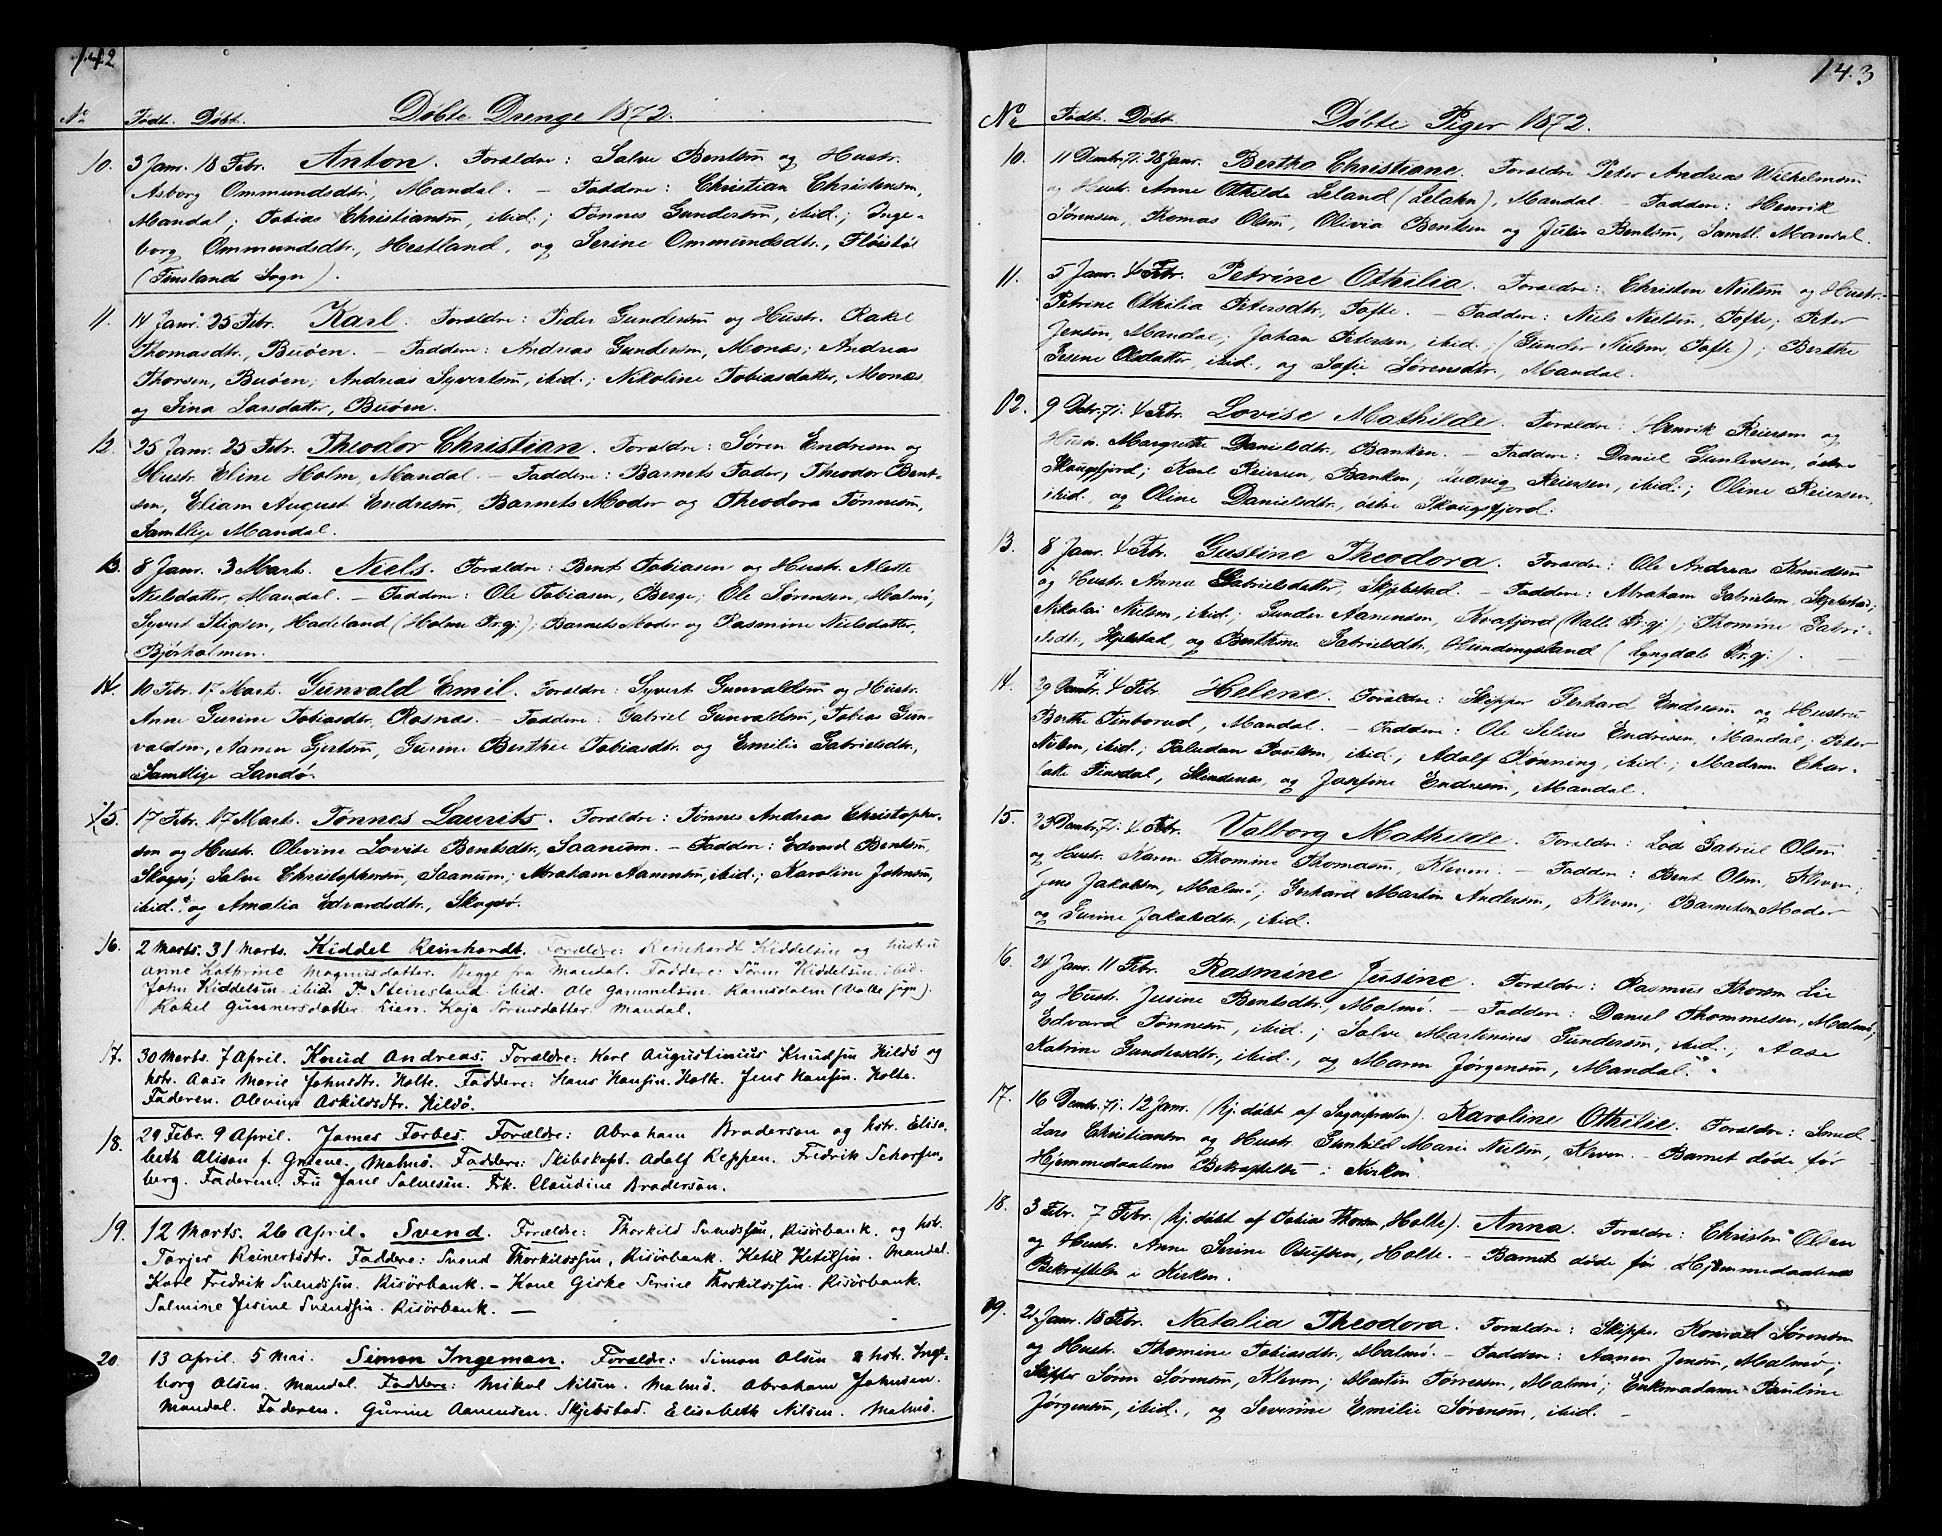 142
No Født. Døbt. Døbte Drenge 1872.
10. 3 Janr. 18 Febr. Anton. Forældre: Salve Bentsen og Hustr.
Asborg Ommundsdtr., Mandal. — Faddere: Christian Christensen,
Mandal; Tobias Christiansen, ibid.; Tønnes Gundersen, ibid.; Inge-
borg Ommundsdtr., Hestland, og Serine Ommundsdtr., Fløistøl
(Finslands Sogn).
11. 14 Janr. 25 Febr. Karl. Forældre: Peder Gundersen og Hustr. Rakel
Thomasdtr., Buøen. — Faddere: Andreas Gundersen, Monæs; Andreas
Thorsen, Buøen; Andreas Syvertsen, ibid.; Nikoline Tobiasdatter, Monæs
og Sina Larsdatter, Buøen.
12. 25 Janr. 25 Febr. Theodor Christian. Forældre: Søren Endresen og
Hustr. Eline Holm, Mandal. — Faddere: Barnets Fader, Theodor Bent-
sen, Eliam August Endresen, Barnets Moder og Theodora Tønnesen,
Samtlige Mandal.
13. 8 Janr. 3 Marts. Niels. Forældre: Bent Tobiasen og Hustr. Alette
Nielsdatter, Mandal. — Faddere: Ole Tobiasen, Berge; Ole Sørensen, Malmø;
Syvert Stigsen, Hadeland (Holme Pr.gj.); Barnets Moder og Rasmine Nielsdatter,
Bjørholmen.
14. 10 Febr. 17 Marts. Gunvald Emil. Forældre: Syvert Gunvaldsen og Hustr.
Anne Gurine Tobiasdtr., Rosnæs. — Faddere: Gabriel Gunvaldsen, Tobias Gun-
valdsen, Aanen Gjertsen, Gurine Berthee Tobiasdtr. og Emilie Gabrielsdtr.,
Samtlige Landø.
15. 17 Febr. 17 Marts. Tønnes Laurits. Forældre: Tønnes Andreas Christopher-
sen og Hustr. Olevine Lovise Bentsdtr., Saanum. — Faddere: Edvard Bentsen,
Skogsø; Salve Christophersen, Saanum; Abraham Aanensen, ibid.; Karoline Johnsen,
ibid. og Amalia Edvardsdtr., Skogsø.
16. 2 Marts. 31 Marts. Kiddel Reinhardt. Forældre: Reinhardt Kiddelsen og hustru
Anne Kathrine Magnusdatter. Begge fra Mandal. Faddere: Søren Kiddelsen. ibid.
John Kiddelsen. ibid. P. Steinsland. ibid. Ole Gammelsen. Ramsdalen (Valle sogn).
Rakel Gunnersdatter. Lien. Kaja Sørensdatter. Mandal.
17. 30 Marts. 7 April. Knud Andreas. Forældre: Karl Augustinius Knudsen Hildø og
hstr. Aase Marie Johnsdtr. Holte. Faddere: Hans Hansen. Holte. Jens Hansen. Holte.
Faderen. Olevine Askildsdtr. Hildø.
18. 29 Febr. 9 April. James Forbes. Forældre: Abraham Brodersen og hstr. Elisa-
beth Alison f. Greene. Malmø. Faddere: Skibskapt. Adolf Reppen. Fredrik Scharfen-
berg. Faderen. Fru Jane Salvesen. Frk. Claudine Brodersen.
19. 12 Marts. 26 April. Svend. Forældre: Thorkild Svendsen, Risørbank. og hst.
Torjer Reinertsdtr. Faddere: Svend Thorkildsen, Risørbank. Ketil Ketilsen. Mandal.
Karl Fredrik Svendsen. Risørbank. – Kone Giske Serine Thorkildsen. Risørbank.
Salmine Jesine Svendsen. Risørbank. —
20. 13 April. 5 Mai. Simon Ingeman. Forældre: Simon Olsen & hstr. Inge-
borg Olsen. Mandal. Faddere: Mikal Nilsen. Malmø. Abraham Johnsen.
Mandal. Faderen. Gurine Aanensen. Skjebstad. Elisabeth Nilsen. Malmø.
143
No Født. Døbt. Døbte Piger 1872.
10. 11 Decbr. 71. 28 Janr. Bertha Christiane. Forældre Peter Andreas Wilhelmsen
og Hustr. Anne Othilde Leland (Lelahn), Mandal. — Faddere: Henrik
Sørensen, Thomas Olsen, Olivia Bentsen og Julia Bentsen, Samtl. Mandal.
11. 5 Janr. 4 Febr. Petrine Othilia. Forældre: Christen Nielsen og Hustr.
Petrine Othilia Petersdtr., Tofte. — Faddere: Niels Nielsen, Tofte; Peter
Jensen, Mandal; Johan Petersen, ibid.; (Gunder Nielsen, Tofte); Berthe
Serine Olsdatter, ibid., og Sofie Sørensdtr., Mandal.
12. 9 Decbr. 71. 4 Febr. Lovise Mathilde. Forældre: Henrik Reiersen og
Hustr. Margrethe Danielsdtr., Banken. — Faddere: Daniel Gunlevsen, østre
Skougsfjord; Karl Reiersen, Banken; Ludvig Reiersen, ibid.; Oline Reiersen,
ibid., og Oline Danielsdtr., østre Skougsfjord.
13. 8 Janr. 4 Febr. Gustine Theodora. Forældre: Ole Andreas Knudsen
og Hustr. Anna Gabrielsdatter, Skjebstad. — Faddere: Abraham Gabrielsen, Skjebstad;
Nikolai Nielsen, ibid.; Gunder Aanensen, Kvafjord (Valle Pr.gj.); Thomine Gabri-
elsdtr., Skjebstad, og Berthine Gabrielsdtr., Hundingsland (Lyngdals Pr.gj.). —
14. 29 Decbr. 71 4 Febr. Helene. Forældre: Skipper Gerhard Endresen og Hustru
Berthe Finborud, Mandal. — Faddere: Ole Selius Endresen, Mandal; Peter
Nielsen, ibid.; Paludan Paulsen, ibid.; Adolf Rønning, ibid.; Madam Char-
lotte Finsdal, Skindenæs, og Josefine Endresen, Mandal.
15. 23 Decbr. 71. 4 Febr. Valborg Mathilde. Forældre: Lods Gabriel Olsen
og Hustr. Karen Thomine Thomasen, Kleven. — Faddere: Bent Olsen, Kleven;
Jens Jakobsen, Malmø; Gerhard Martin Andersen, Kleven; Barnets Moder
og Gurine Jakobsdtr., ibid.
16. 24 Janr. 11 Febr. Rasmine Jusine. Forældre: Rasmus Thorsen Lie
og Hustr. Jusine Bentsdtr., Malmø. — Faddere: Daniel Thommesen, Malmø;
Edvard Tønnesen, ibid.; Salve Martinius Gundersen, ibid.; Aase
Katrine Gundersdtr., ibid., og Maren Jørgensen, Mandal.
17. 16 Decbr. 71. 12 Janr. (Hj. døbt af Sognepræsten). Karoline Othilie. Forældre: Smed
Lars Christiansen og Hustr. Gunhild Marie Nielsen, Kleven. — Barnet døde før
Hjemmedaabens Bekræftelse i Kirken.
18. 3 Febr. 7 Febr. (Hj. døbt af Tobias Thorsen, Holte). Anna. Forældre: Christen Olsen
og Hustr. Anne Serine Osufsen, Holte. — Barnet døde før Hjemmedaabens
Bekræftelse i Kirken.
19. 21 Janr. 18 Febr. Natalia Theodora. Forældre: Skipper Konrad Sørensen
og Hustr. Thomine Tobiasdtr., Malmø. — Faddere: Aanen Jensen, Malmø;
Skipper Søren Sørensen, Kleven; Martin Tørresen, Malmø; Enkemadame Pauline
Jørgensen, ibid., og Severine Emilie Sørensen, ibid. —